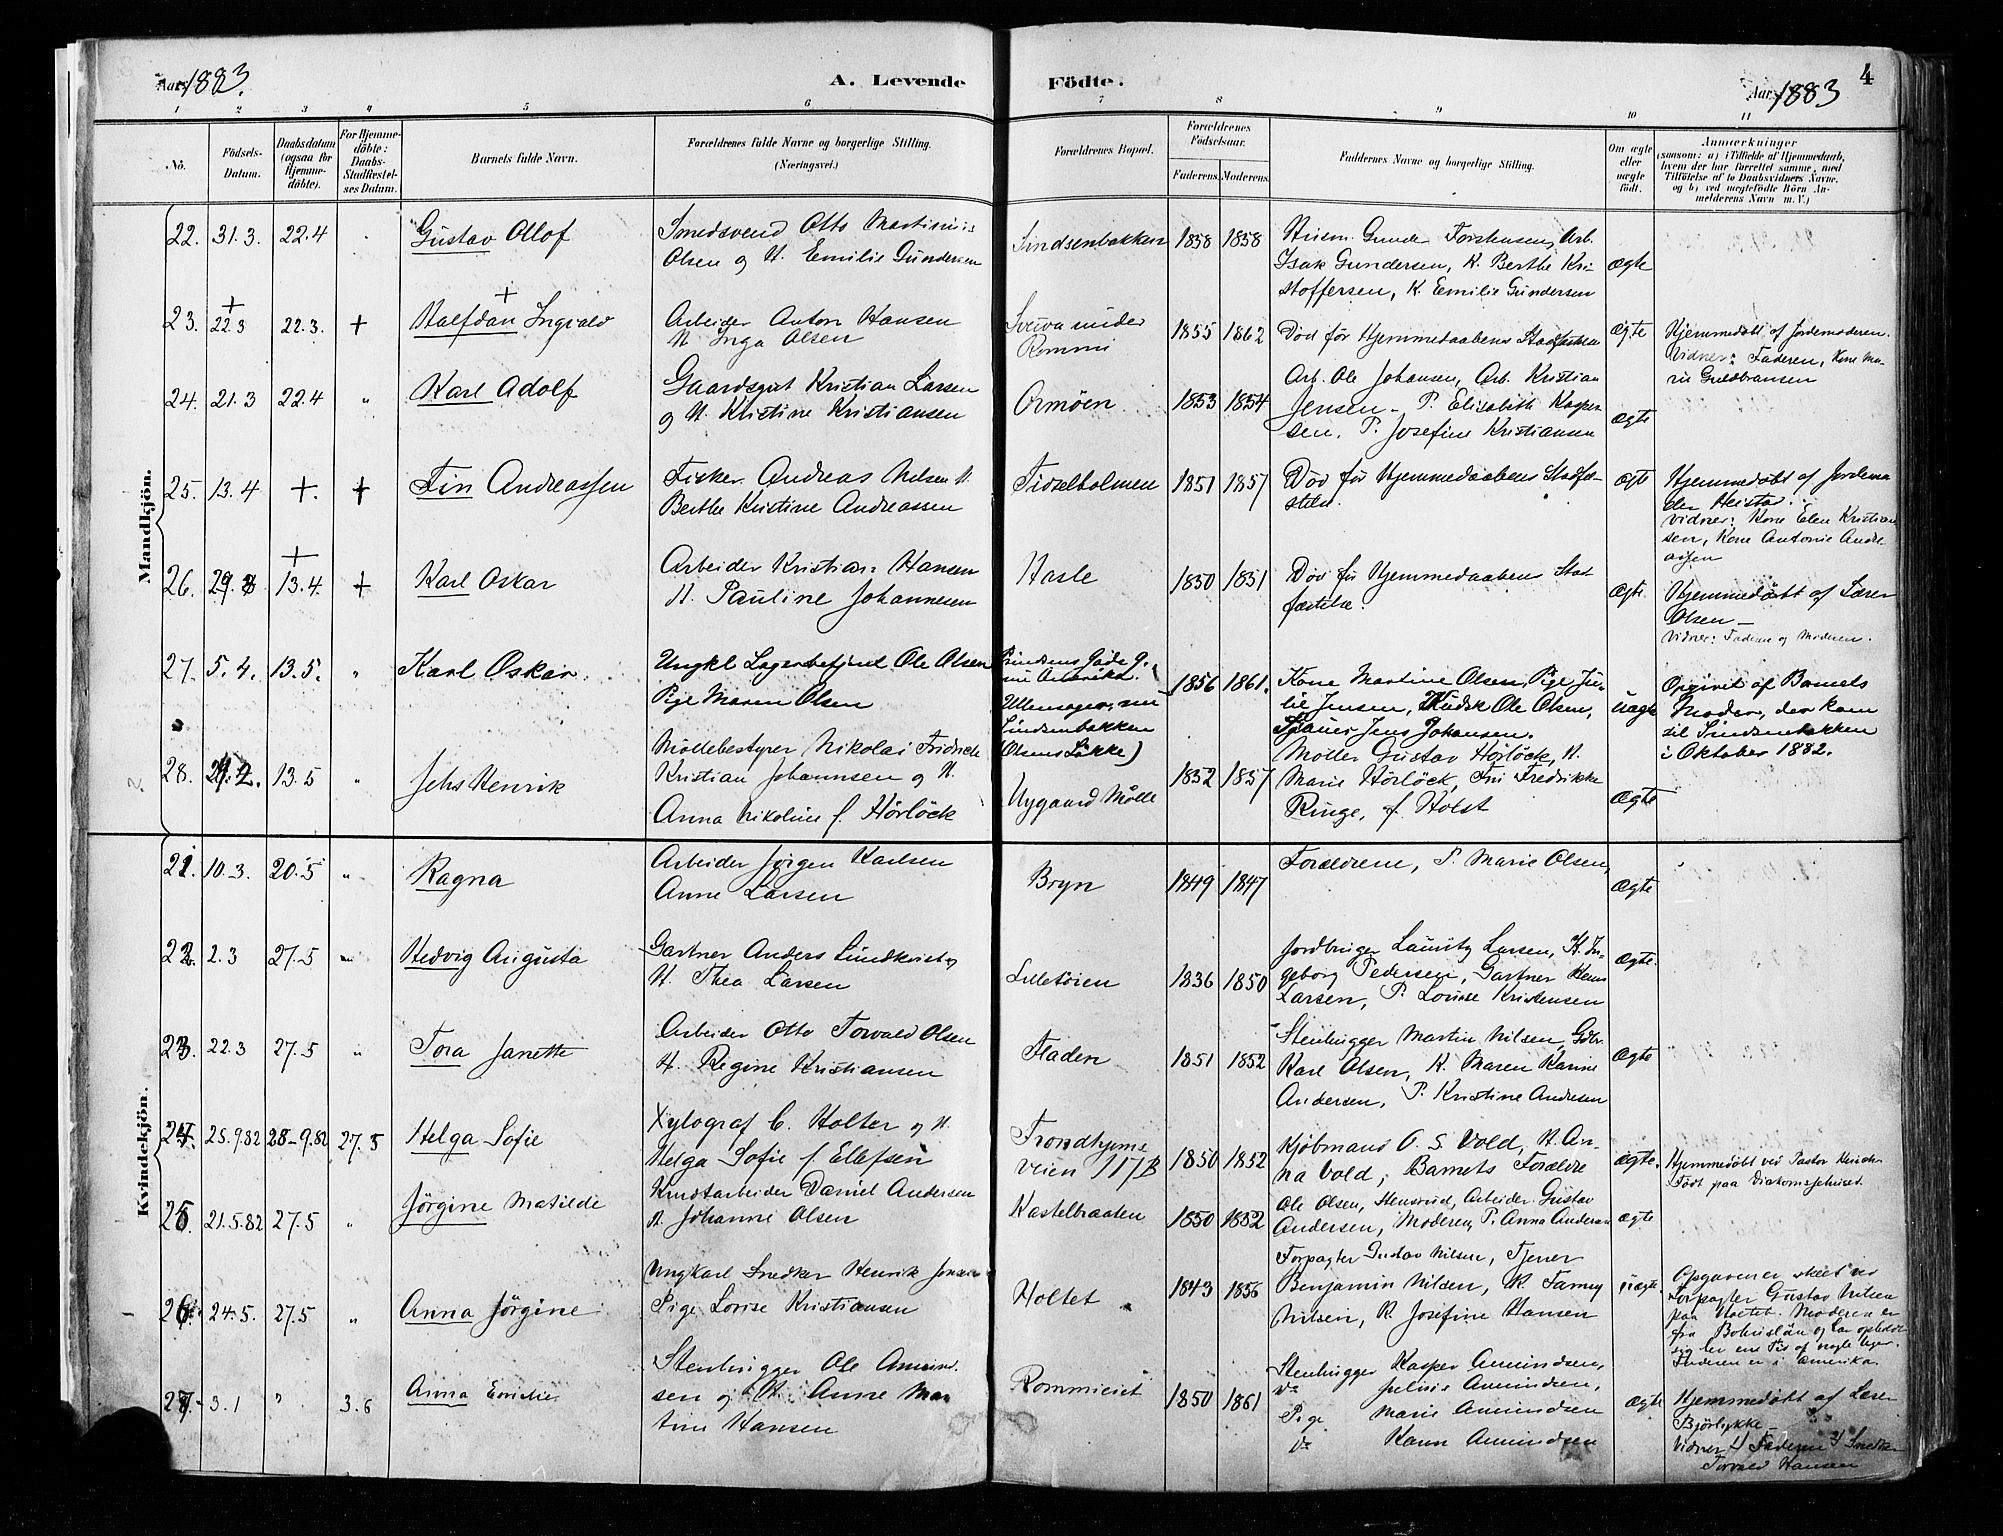 Aar 1883.
A. Levende
Födte.
Aar 1883
4
1 2 3 4 5 6 7 8 9 10 11
No.
Födsels-
Datum.
Daabsdatum
(ogsaa for
Hjemme-
döbte).
For Hjemme-
döbte:
Daabs-
Stadfæstel-
ses Datum.
Barnets fulde Navn.
Forældrenes fulde Navne og borgerlige Stilling.
(Næringsvei.)
Forældrenes Bopæl.
Forældrenes
Födselsaar.
Faderens.
Moderens.
Faddernes Navne og borgerlige Stilling.
Om ægte
eller
uægte
födt.
Anmærkninger
(saasom: a) i Tilfælde af Hjemmedaab,
hvem der har forrettet samme, med
Tilföielse af to Daabsvidners Navne.
og b) ved uægtefödte Börn An-
melderens Navn m. V.)
Mandkjön.
22. 31.3. 22.4 Gustav Ollof
Smedsvend Otto Martinius
Olsen og H. Emilie Gundersen
Sindsenbakken 1858 1858
Husm. Gunder Torstensen, Arb.
Isak Gundersen, K. Berthe Kri
stoffersen, K. Emilie Gundersen
ægte
23. + 22.3 22.3. + Halfdan + Ingvald
Arbeider Anton Hansen
H Inga Olsen
under
Rommi
1855 1862
Död för Hjemmedaabens Stadfæstelse
ægte
Hjemmedöbt af Jordemoderen.
Vidner: Faderen, Kone Ma-
rie Guldbransen
24. 21.3 22.4 " Karl Adolf
Gaardsgut Kristian Larsen
og H. Kristine Kristiansen
Ormöen 1853 1854
Arb. Ole Johansen, Arb. Kristian
Jensen - P. Elisabeth Kasper
sen, P. Josefine Kristiansen
ægte
25. 13.4 +. + Fin Andreassen
Fisker Andreas Nilsen H.
Berthe Kristine Andreassen
1851 1857
Död för Hjemmedaabens Stadfæ-
stelse.
ægte
Hjemmedöbt af Jordemo
der
Vidner: Kone Elen Kristian
sen, Kone Antonie Andre
assen
26. 29.3 + 13.4. + Karl Oskar
Arbeider Kristian Hansen
H. Pauline Johannesen
Hasle 1850 1851
Död för Hjemmedaabens Stad
fæstelse.
ægte
Hjemmedöbt af Lærer
Olsen -
Vidner: Faderen og Moderen.
27. 5.4. 13.5. " Karl Oskar.
Ungkl Lagerbetjent Ole Olsen
Pige Maren Olsen
Prindsens Gade 9.
nu Amerika.
Ullensager, nu
Sindsenbakken
(Olsens Lökke)
1856 1861.
Kone Martine Olsen, Pige Ju-
lie Jensen, Kudsk Ole Olsen,
Jens Johansen.
uægte
Opgivet af Barnets
Moder, der kom
til Sindsenbakken
i Oktober 1882.
28. 13.5 " Jens Henrik
Möllebestyrer Nikolai Fridrich
Kristian Johannsen og H.
Anna Nikoline f. Hörlöck
Nygaard Mölle
1852 1857
Möller Gustav Hörlöck, H.
Marie Hörlöck, Fru Fredrikke
Ringe, f. Holst
ægte
Kvindekjön.
21. 10.3. 20.5 " Ragna
Arbeider Jörgen Karlsen
Anne Larsen
Bryn 1849 1847
Forældrene, P. Marie Olsen,
ægte
22. 2.3 27.5 Hedvig Augusta
Gartner Anders Lundkvist og
H. Thea Larsen
Lilletöien 1836 1850
Jordbruger Lauritz Larsen, K. In-
geborg Pedersen, Gartner Hans
Larsen, P. Louise Kristensen
ægte.
23. 22.3 27.5 " Tora Janette
Arbeider Otto Torvald Olsen
H. Regine Kristiansen
Fladen 1851 1852
Stenhugger Martin Nilsen, Gdbr.
Karl Olsen, K. Maren Karine
Andersen, P. Kristine Andresen
ægte
24. 25.9.82 28-9.82 27.5 Helga Sofie
Xylograf C. Holter og H.
Helga Sofie f. Ellefsen
Trondhjems
veien 117B
1850 1852
Kjöbmand O. S. Vold, H. An-
na Vold, Barnets Forældre
ægte.
Hjemmedöbt ved Pastor
Födt paa
25. 21.5.82 27.5 " Jörgine Matilde
Kunstarbeider Daniel Andersen
H. Johanne Olsen
Kastelbraaten 1850 1852
Ole Olsen, Stensrud, Arbeider Gustav
Andersen, Moderen, P. Anna Andersen
ægte
26. 24.5. 27.5 " Anna Jörgine
Ungkarl Snedker Henrik Jonsen
Pige Lovise Kristiansen
Holtet. 1843 1856
Forpagter Gustav Nilsen, Tjener
Benjamin Nilsen, K. Fanny
Nilsen, K. Josefine Hansen
uægte.
Opgaven er skeet ved
Forpagter Gustav Nilsen
paa Holtet. Moderen er
fra Bohuslän og har opholdt
sig her en Tid af nogle Uger.
Faderen er i Amerika.
27. 3.1 " 3.6 Anna Emilie
Stenhugger Ole Amund-
sen og H. Anne Mar
tine Hansen
1850 1861
Stenhugger Kasper Amundsen,
do Julius Amundsen,
Pige Marie Amundsen
do Karen Amundsen
ægte
Hjemmedöbt af Lærer
Björlykke -
Vidner 1) Faderen 2) Snedker
Torvald Hansen